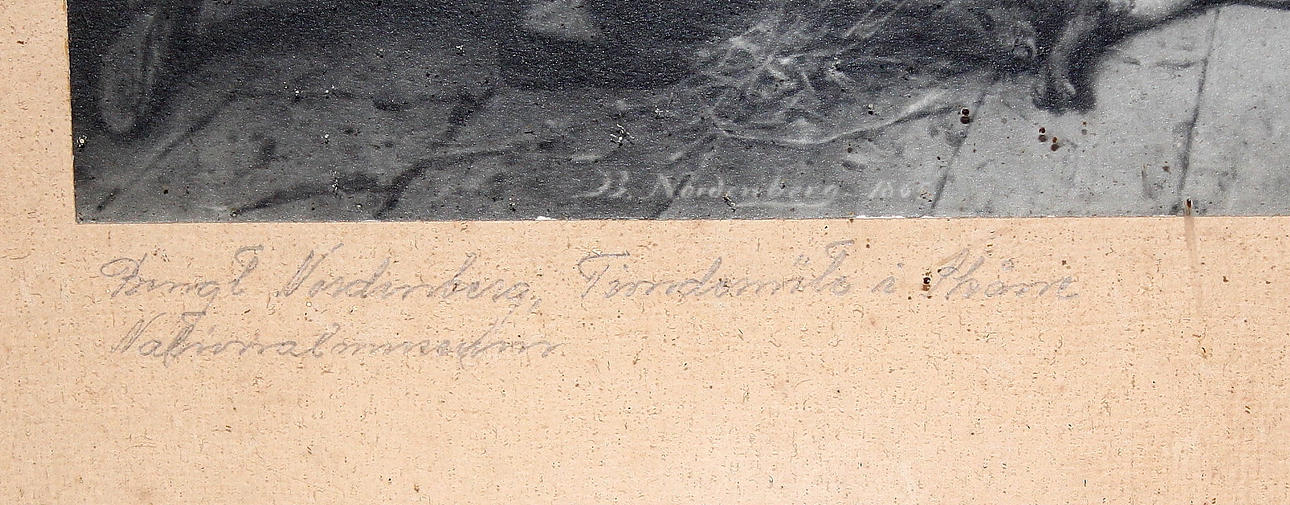 B. Nordenberg 186
Bengt Nordenberg, Tiondemöte i Skåne
Nationalmuseum